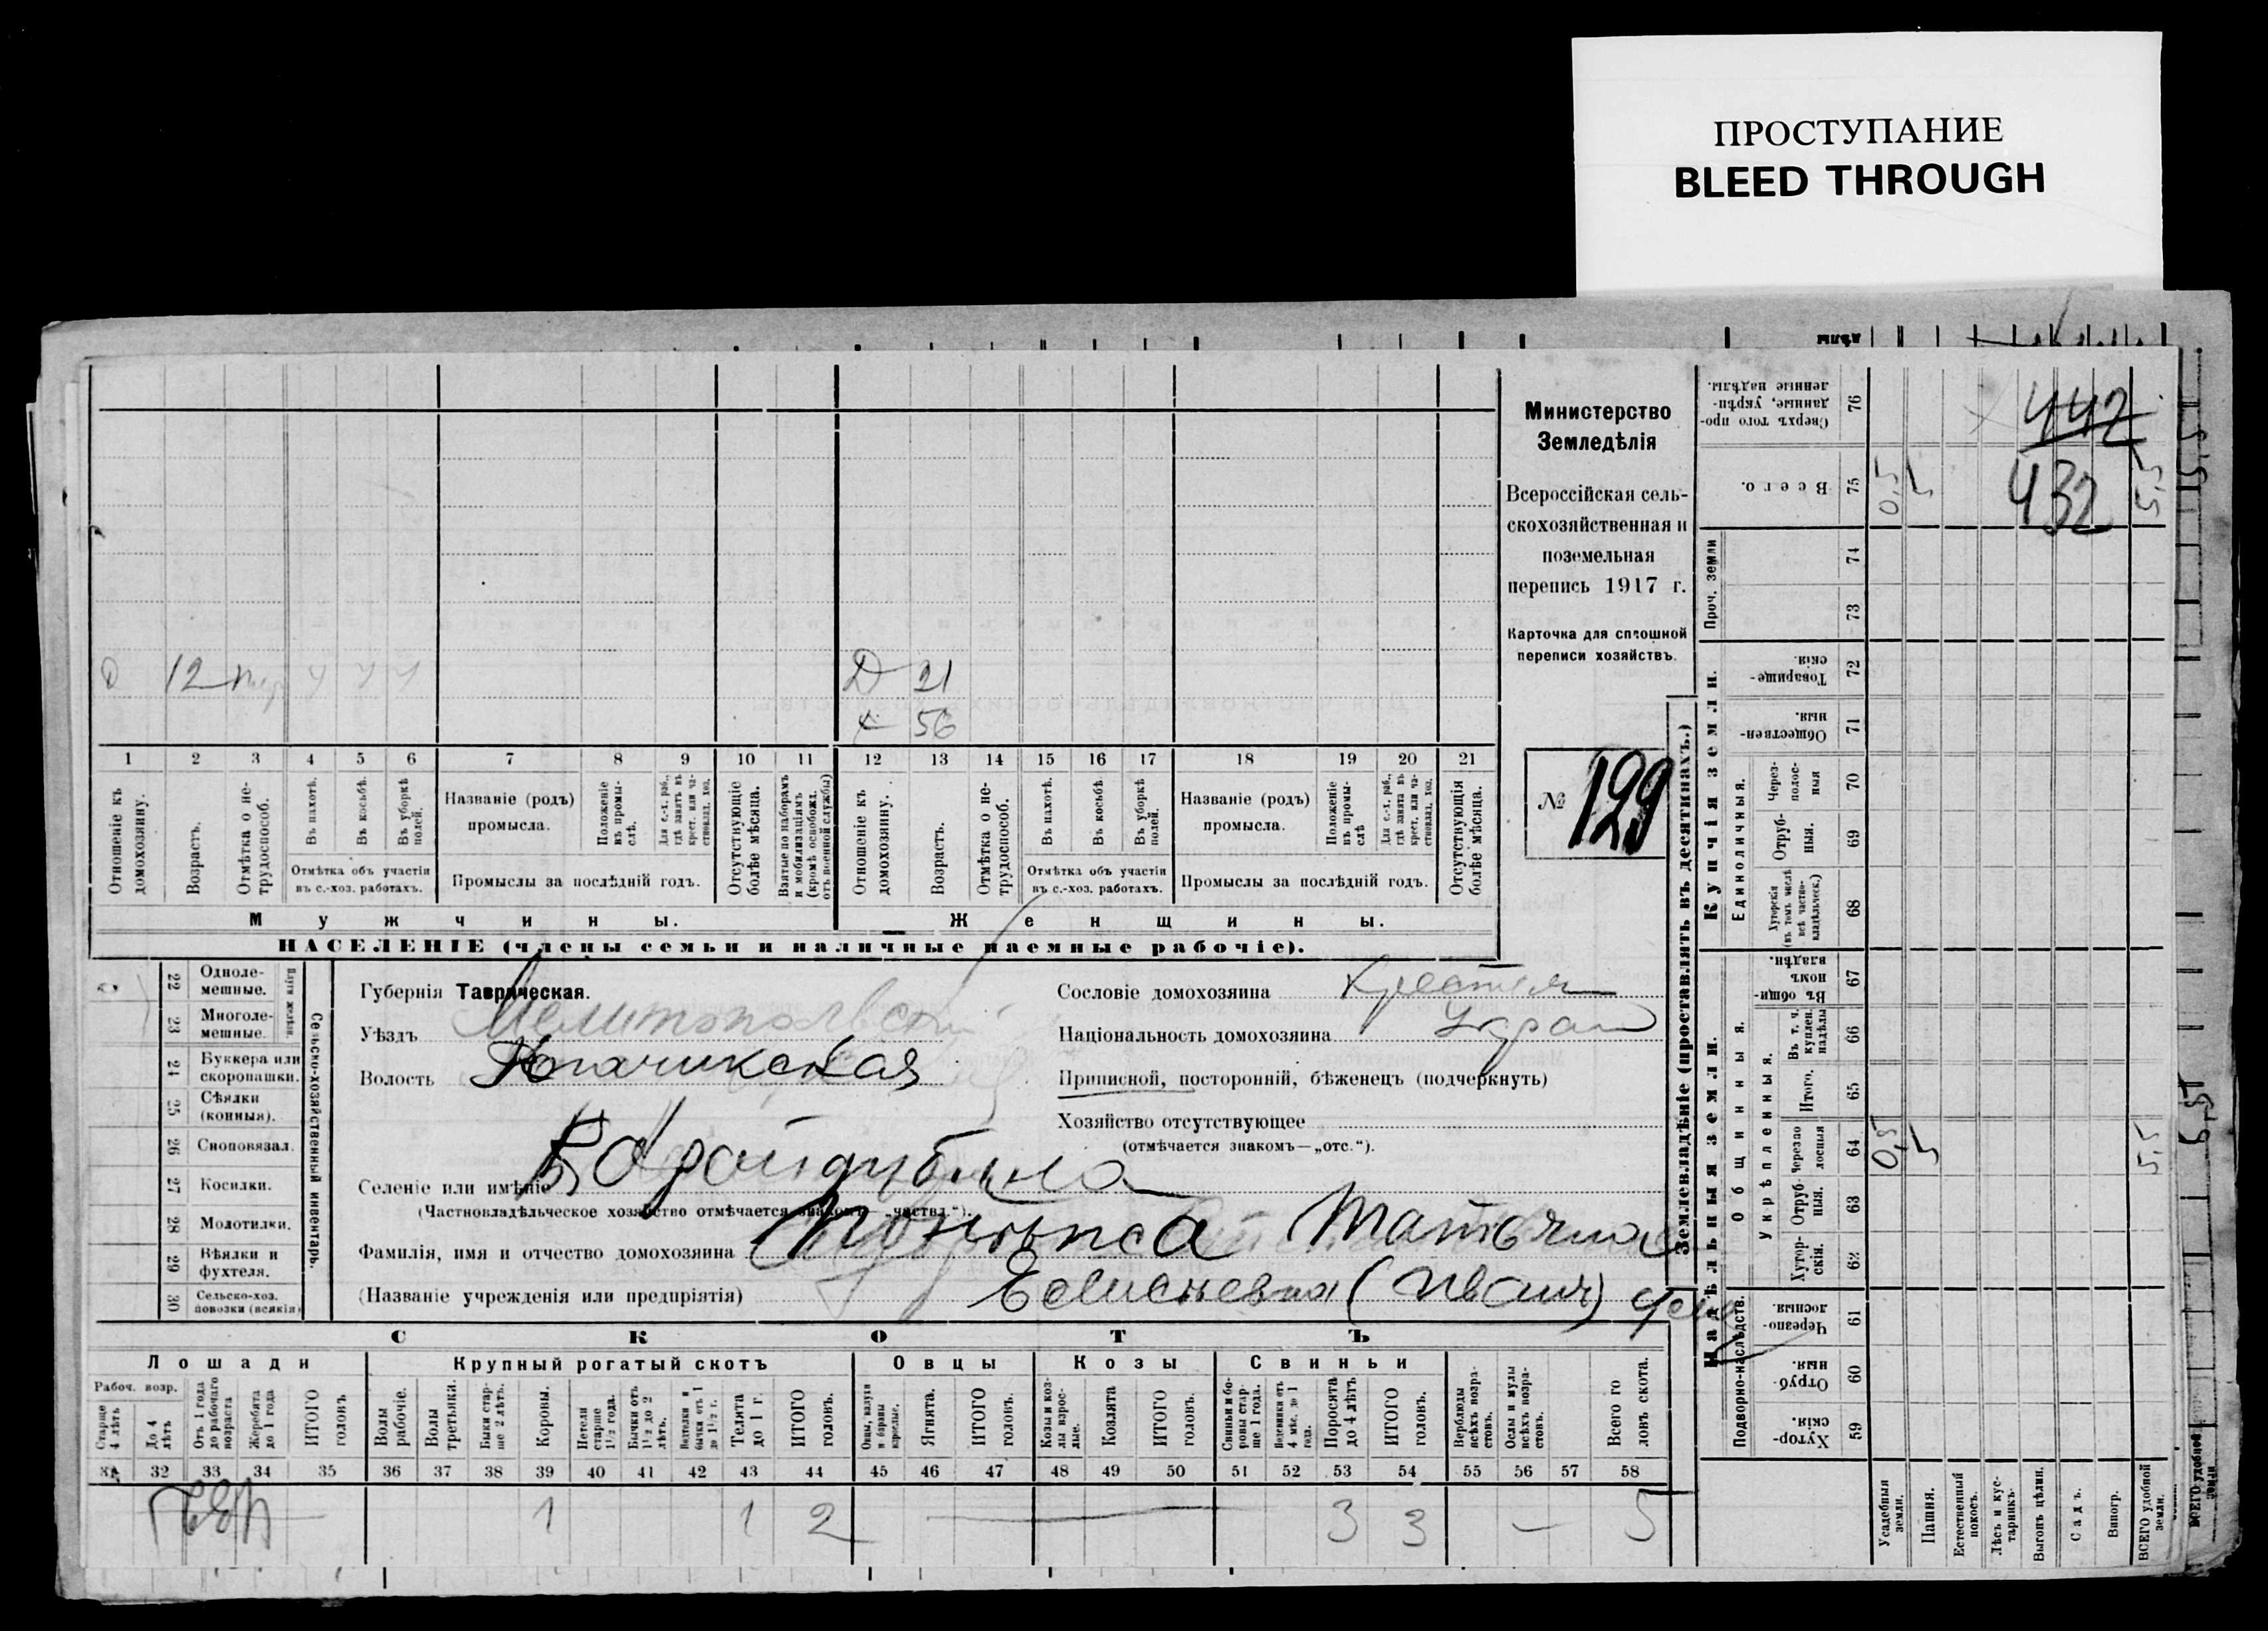 ПРОСТУПАНИЕ
BLEED THROUGH
442
432
Министерство
Земледѣлія
Всероссійская сель-
скохозяйственная и
поземельная
перепись 1917 г.
Карточка для сплошной
переписи хозяйствъ.
№ 129
Д 12
Д 21
56
1 2 3 4 5 6 7 8 9 10 11 12 13 14 15 16 17 18 19 20 21
Отношеніе къ домохозяину.
Возрастъ.
Отмѣтка о не-трудоспособ.
Въ пахотѣ.
Въ косьбѣ.
Въ уборкѣ полей.
Отмѣтка объ участіи
въ с.-хоз. работахъ.
Названіе (родъ)
промысла.
Положеніе въ промы-слѣ.
Для с.-х. раб., гдѣ занятъ въ крест. или ча-стновлад. хоз.
Промыслы за послѣдній годъ.
Отсутствующіе болѣе мѣсяца.
Взятые по наборамъ и мобилизаціямъ (кромѣ освобожд. отъ военной службы)
Отношеніе къ домохозяину.
Возрастъ.
Отмѣтка о не-трудоспособ.
Въ пахотѣ.
Въ косьбѣ.
Въ уборкѣ полей.
Отмѣтка объ участіи
въ с.-хоз. работахъ.
Названіе (родъ)
промысла.
Положеніе въ промы-слѣ
Для с.-х. раб., гдѣ занята въ крест. или ча-стновлад. хоз.
Промыслы за послѣдній годъ.
Отсутствующія болѣе мѣсяца.
Мужчины.
Женщины.
НАСЕЛЕНІЕ (члены семьи и наличные наемные рабочіе).
22 Одноле-мешные.
23 Многоле-мешные.
24 Буккера или скоропашки.
25 Сѣялки (конныя).
26 Сноповязал.
27 Косилки.
28 Молотилки.
29 Вѣялки и фухтеля.
30 Сельско-хоз. повозки (всякія)
Сельско-хозяйственный инвентарь.
Губернія Таврическая.
Уѣздъ Мелитопольскій
Волость
Селеніе или имѣніе
(Частновладѣльческое хозяйство отмѣчается знакомъ „частвл.“).
Фамилія, имя и отчество домохозяина
(Названіе учрежденія или предпріятія)
Сословіе домохозяина Крестьян
Національность домохозяина Украин
Приписной, посторонній, бѣженецъ (подчеркнуть)
Хозяйство отсутствующее
(отмѣчается знакомъ—„отс.“).
СКОТЪ
Лошади
Крупный рогатый скотъ
Овцы
Козы
Свиньи
Рабоч. возр.
Старше 4 лѣтъ
До 4 лѣтъ
Отъ 1 года до рабочаго возраста
Жеребята до 1 года
ИТОГО головъ
Волы рабочіе.
Волы третьяки.
Быки стар-ше 2 лѣтъ.
Коровы.
Нетели старше 1½ года.
Бычки отъ 1½ до 2 лѣтъ.
Телки и бычки отъ 1 до 1½ г.
Телята до 1 г.
ИТОГО головъ.
Овцы, валухи и бараны взрослые.
Ягнята.
ИТОГО головъ.
Козы и коз-лы взрос-лые.
Козлята
ИТОГО головъ.
Свиньи и бо-ровы стар-ше 1 года.
Подсвинки отъ 4 мѣс. до 1 года.
Поросята до 4 лѣтъ
ИТОГО головъ.
Верблюды всѣхъ возра-стовъ.
Ослы и мулы всѣхъ возра-стовъ.
Всего го ловъ скота.
32 33 34 35 36 37 38 39 40 41 42 43 44 45 46 47 48 49 50 51 52 53 54 55 56 57 58
1 1 2 3 3 — 5
Землевладѣніе (проставлять въ десятинахъ.)
Надѣльныя земли.
Купчія земли.
Проч. земли
Подворно-наслѣдств.
Общинныя.
Укрѣпленныя.
Единоличныя.
Хутор-скія. 59
Отруб-ныя. 60
Черезпо-лосныя. 61
Хутор-скія. 62
Отруб-ныя. 63
Черезпо лосныя 64
Итого. 65
Въ т. ч. куплен. надѣлы 66
Въ общи-номъ владѣн. 67
Хуторскія (въ томъ числѣ всѣ частно-владѣльческ.) 68
Отруб-ныя. 69
Через-полос-ныя 70
Обществен-ныя. 71
Товарище-скія. 72
73
74
Всего. 75
Сверхъ того про-данные, укрѣп-ленные надѣлы. 76
Усадебныя земли. 0,5 0,5
Пашня. 5 5
Естественный покосъ.
Лѣсъ и кус-тарникъ.
Выгонъ цѣлин.
Садъ.
Виногр.
ВСЕГО удобной земли. 5,5 5,5